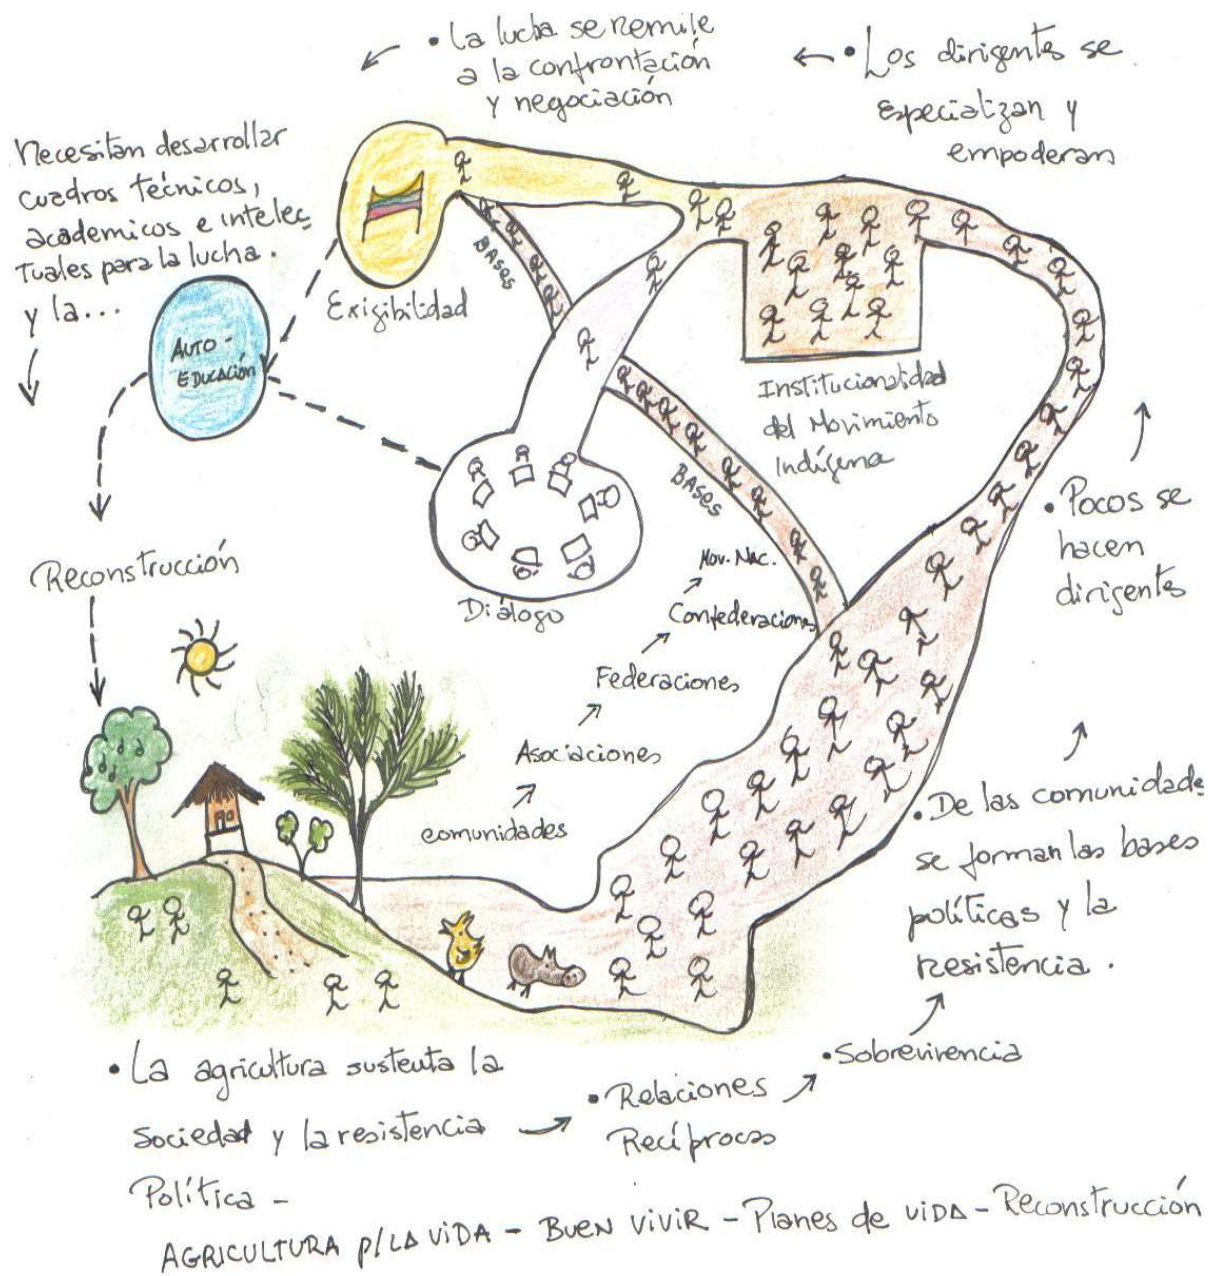 • La lucha se remite
a la confrontación
y negociación
• Los dirigentes se
especializan y
empoderan
Necesitan desarrollar
cuadros técnicos,
academicos e intelec
tuales para la lucha.
y la...
AUTO-
EDUCACIÓN
Exigibilidad
BASES
Institucionalidad
del Movimiento
Indígena
BASES
• Pocos se
hacen
dirigentes
Reconstrucción
Diálogo
Mov. Nac.
Confederaciones
Federaciones
Asociaciones
comunidades
• De las comunidades
se forman las bases
políticas y la
resistencia.
• La agricultura sustenta la
sociedad y la resistencia
Política -
• Relaciones
Recíprocas
• Sobrevivencia
AGRICULTURA p/LA VIDA - BUEN VIVIR - Planes de VIDA - Reconstrucción